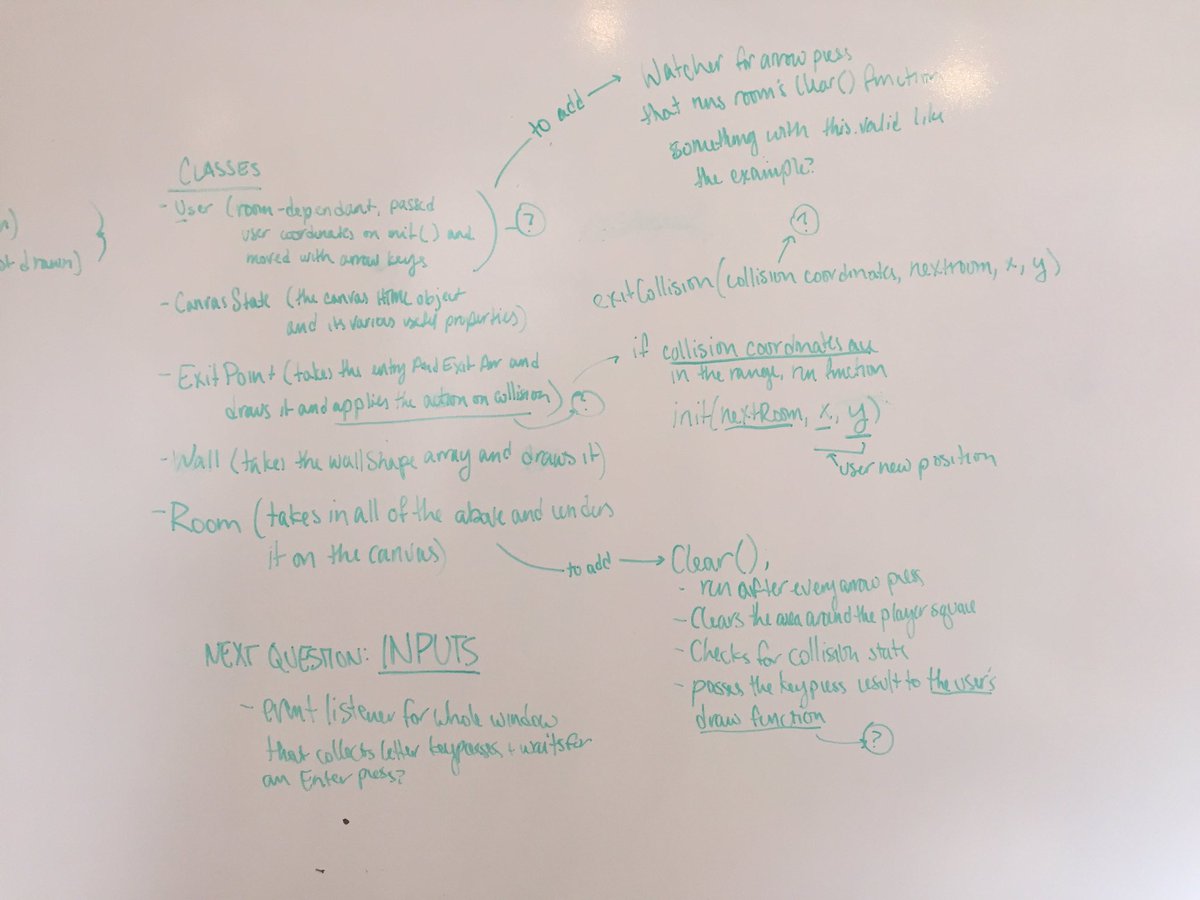 n)
ot drawn) }
CLASSES
- User (room-dependant, passed
user coordinates on init() and
moved with arrow keys
?
to add
Watcher for arrow press
that runs room's Clear() function
something with this.valid like
the example?
- CanvasState (the canvas HTML object
and its various useful properties)
- Exit Point (takes the entry And Exit Arr and
draws it and applies the action on collision)
?
?
exitCollision(collision coordinates, nextroom, x, y)
if collision coordinates are
in the range, run function
init(nextRoom, x, y)
user new position
- Wall (takes the wallShape array and draws it)
- Room (takes in all of the above and renders
it on the canvas)
to add
Clear(),
- run after every arrow press
- Clears the area around the player square
- Checks for collision state
- passes the keypress result to the user's
draw function
?
NEXT QUESTION: INPUTS
- event listener for whole window
that collects letter keypresses + waits for
an Enter press?